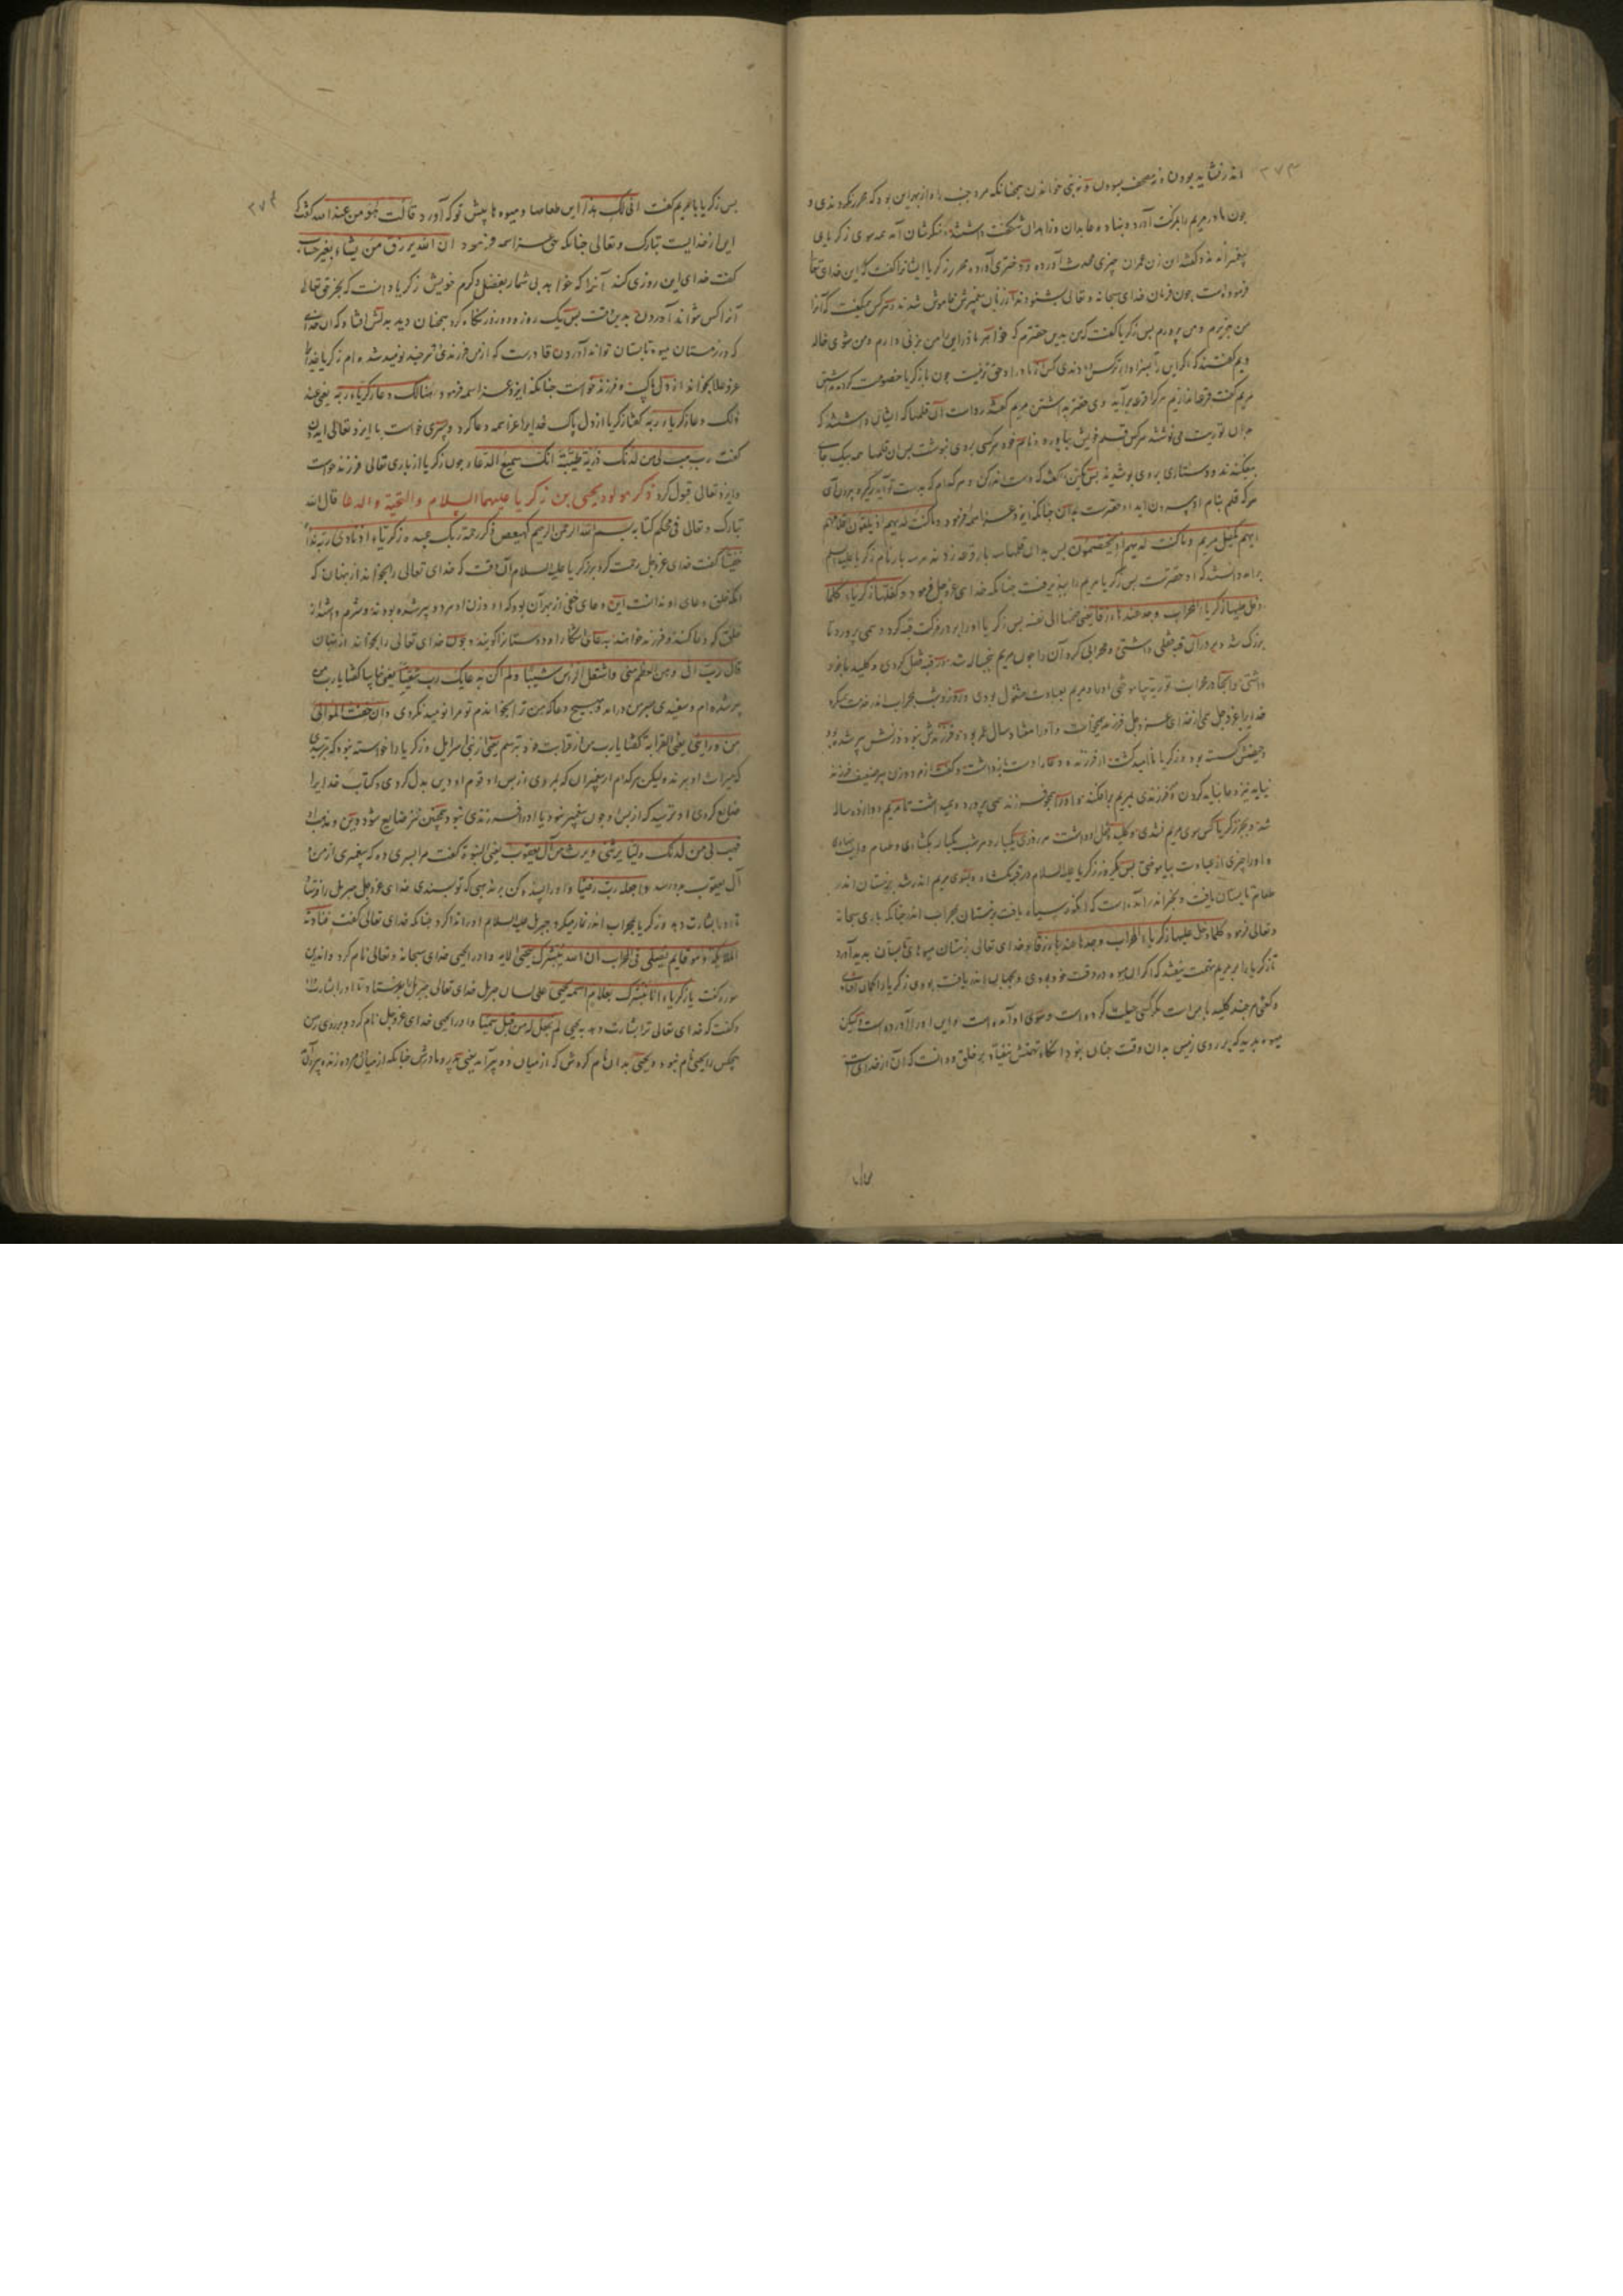 ۲۷۳
اندر نشاید بودن و نه مصحف بسودن و نه نبی خواندن همچنانکه مرد جنب را و از بهر این بود که محرر نکردندی و
چون مادر مریم را بمزکت آورد و بنهاد و عابدان و زاهدان شکفت داشتند بزرکان شان آمدند سوی زکریای
پیغمبر آمدند و کفتند این زن عمران چیزی محدث آورده و دختری آورده محرر زکریا ایشانرا کفت که این خدای تعالی
فرموده است چون فرمان خدای سبحانه و تعالی بشنودند از زبان پیغمبرش خاموش شدند و هر کس میکفت که آنرا
من بپذیرم و من پرورم بس زکریا کفت که من بدین حقترم که خواهر مادر این را من بزنی دارم و من شوی خاله
ویم کفتند که اکر این را بسزاوارتر کس دادندی کس آنرا مادر او حق تر نیست چون با زکریا خصومت کردند بداشتن
مریم کفت قرعها بازنیم هر کرا قرعه برآید وی حقتر بداشتن مریم کفتند رواست آن قلمها که ایشان داشتند که
بدان توریت می نوشتند هر کس قلم خویش بیاورد و نام خود هر کسی بروی نبوشت بس آن قلمها همه بیک جای
بیفکندند و دستاری بروی بوشیدند بس یکی را کفتند که دست اندر کن و هر کدام که بدست تو آید برکیر و بیرون آر
هر که قلم بنام او بیرون آید او حقترست بدین چنانکه ایزد عز اسمه فرمود و ما کنت لدیهم اذ یلقون اقلامهم
ایهم یکفل مریم و ما کنت لدیهم اذ یختصمون بس بدان قلمها سه بار قرعه زدند هر سه بار نام زکریا علیه السلم
برآمد دانستند که او حقترست بس زکریا مریم را بپذیرفت چنانکه خدای عز و جل فرمود و کفلها زکریا کلما
دخل علیها زکریا المحراب وجد عندها رزقا یعنی ضمها الی نفسه بس زکریا او را ببرد در مزکت قبه کرد و همی پرورد تا
بزرک شد و بر در آن قبه قفلی داشتی و محرابی کرد آن را چون مریم پنج ساله شد در قبه قفل کردی و کلید با خود
داشتی و آنجا در محراب توریة بیاموختی او را و مریم بعبادت مشغول بودی و روز و شب بمحراب اندر خدمت میکرد
خدایرا عز و جل همی از خدای عز و جل فرزند میخواست و او را هفتاد سال عمر بود و فرزندش نبود و زنش پیر شده بود
و حیضش کسسته بود و زکریا ناامید کشت از فرزند و دعا را دست بازداشت و کفت از مرد و زن پیر ضعیف فرزند
نیاید نیز دعا نباید کردن و فرزندی بمریم برافکند و او را همچو فرزند همی پرورد و میداشت تا مریم دوازده ساله
شد و بجز زکریا کس سوی مریم نشدی و کلید قفل او داشت هر روزی یکبار و هر شب یکبار بکشادی و طعام و آب بدادی
و او را چیزی از عبادت بیاموختی بس یکروز زکریا علیه السلام در قبه بکشاد و بسوی مریم اندر شد بزمستان اندر
طعام تابستان یافت و بخبر اندر آمده است که انکور سیاه یافت بزمستان بمحراب اندر چنانکه باری سبحانه
و تعالی فرمود کلما دخل علیها زکریاء المحراب وجد عندها رزقا و خدای تعالی بزمستان میوهای تابستان پدید آورد
تا زکریا را بر مریم تهمت نیفتد که اکر آن میوه در وقت خود بودی و بمحراب اندر یافته بودی زکریا را کمان افتادی
و کفتی هر چند کلید با من است مکر کسی حیلت کرده است و سوی او آمده است و این او را آورده است و لیکن
میوه پدید که بر روی زمین بدان وقت چنان نبود تا آنکاه تهمتش نیفتاد بر خلق و دانست که آن از خدای است
۲۷۴
بس زکریا با مریم کفت انی لک هذا این طعامها و میوه ها پیش تو که آورد قالت هو من عند الله کفت که
این از خدایست تبارک و تعالی چنانکه حق عز اسمه فرمود ان الله یرزق من یشاء بغیر حساب
کفت خدای این روزی کند آنرا که خواهد بی شمار بفضل و کرم خویش زکریا دانست که بجز حق تعالی
آنرا کس نتواند آوردن بدین وقت بس یک روز و دو روز نکاه کرد همچنان دید بدلش افتاد که ان خدای
که در زمستان میوه تابستان تواند آوردن قادرست که از من فرزندی هر چند نومید شده ام زکریا خدایرا
عز و علا بخواند از دل پاک و فرزند خواست چنانکه ایزد عز اسمه فرمود هنالک دعا زکریاء ربه یعنی عند
ذلک دعا زکریاء ربه کفتا زکریا از دل پاک خدایرا عز اسمه دعا کرد و پسری خواست با ایزد تعالی ایدون
کفت رب هب لی من لدنک ذریة طیبة انک سمیع الدعاء چون زکریا از باری تعالی فرزند خواست
و ایزد تعالی قبول کرد ذکر مولود یحیی بن زکریا علیهما السلام والتحیة و الدعا قال الله
تبارک و تعالی فی محکم کتابه بسم الله الرحمن الرحیم کهیعص ذکر رحمة ربک عبده زکریاء اذ نادی ربه نداء
خفیا کفت خدای عز و جل رحمت کرد بر زکریا علیه السلام آن وقت که خدای تعالی را بخواند از پنهان که
آنکه خلق دعای او ندانست این دعای خفی از بهر آن بود که او و زن او هر دو پیر شده بودند و شرم داشت از
خلق که دعا کند و فرزند خواهد به دعای آشکارا و دوستانرا کویند و چون خدای تعالی را بخواند از پنهان
قال رب انی وهن العظم منی واشتعل الراس شیبا ولم اکن بدعایک رب شقیا یعنی خایبا کفتا یا رب من
پیر شده ام و سفیدی بسر من درآمد و هیچ دعا که من ترا بخواندم تو مرا نومید نکردی وانی خفت الموالی
من ورائی یعنی القرابة کفتا یا رب من از قرابت خود بترسم یعنی از بنی اسرایل و زکریا را خواسته نبود که بترسیدی
که میراث او برند و لیکن هر کدام از پیغمبران که بمردی از پس او قوم او دین بدل کردی و کتاب خدایرا
ضایع کردی او ترسید که از پس او چون پیغمبر نبود یا او را فرزندی نبود همچنین نیز ضایع شود دین و مذهب او
فهب لی من لدنک ولیا یرثنی ویرث من آل یعقوب یعنی النبوة کفت مرا پسری ده که پیغمبری از من و از
آل یعقوب بدو رسد واجعله رب رضیا و او را پسندیده کن بر مذهبی که تو پسندی خدای عز و جل جبریل را فرستاد
تا او را بشارت دهد و زکریا بمحراب اندر نماز میکرد جبریل علیه السلام او را ندا کرد چنانکه خدای تعالی کفت فنادته
الملائکة وهو قایم یصلی فی المحراب ان الله یبشرک بیحیی الایه و او را یحیی خدای سبحانه و تعالی نام کرد و اندرین
سوره کفت یا زکریاء انا نبشرک بغلام اسمه یحیی علی لسان جبریل خدای تعالی جبریل را بفرستاد تا او را بشارت داد
و کفت که خدای تعالی ترا بشارت دهد به یحیی لم نجعل له من قبل سمیا و او را یحیی خدای عز و جل نام کرد و بر روی زمین
هیچکس را یحیی نام نبود و یحیی بدان نام کردش که از میان دو پیر آمد یعنی پدر و مادرش چنانکه از میان مرده زنده بیرون آید